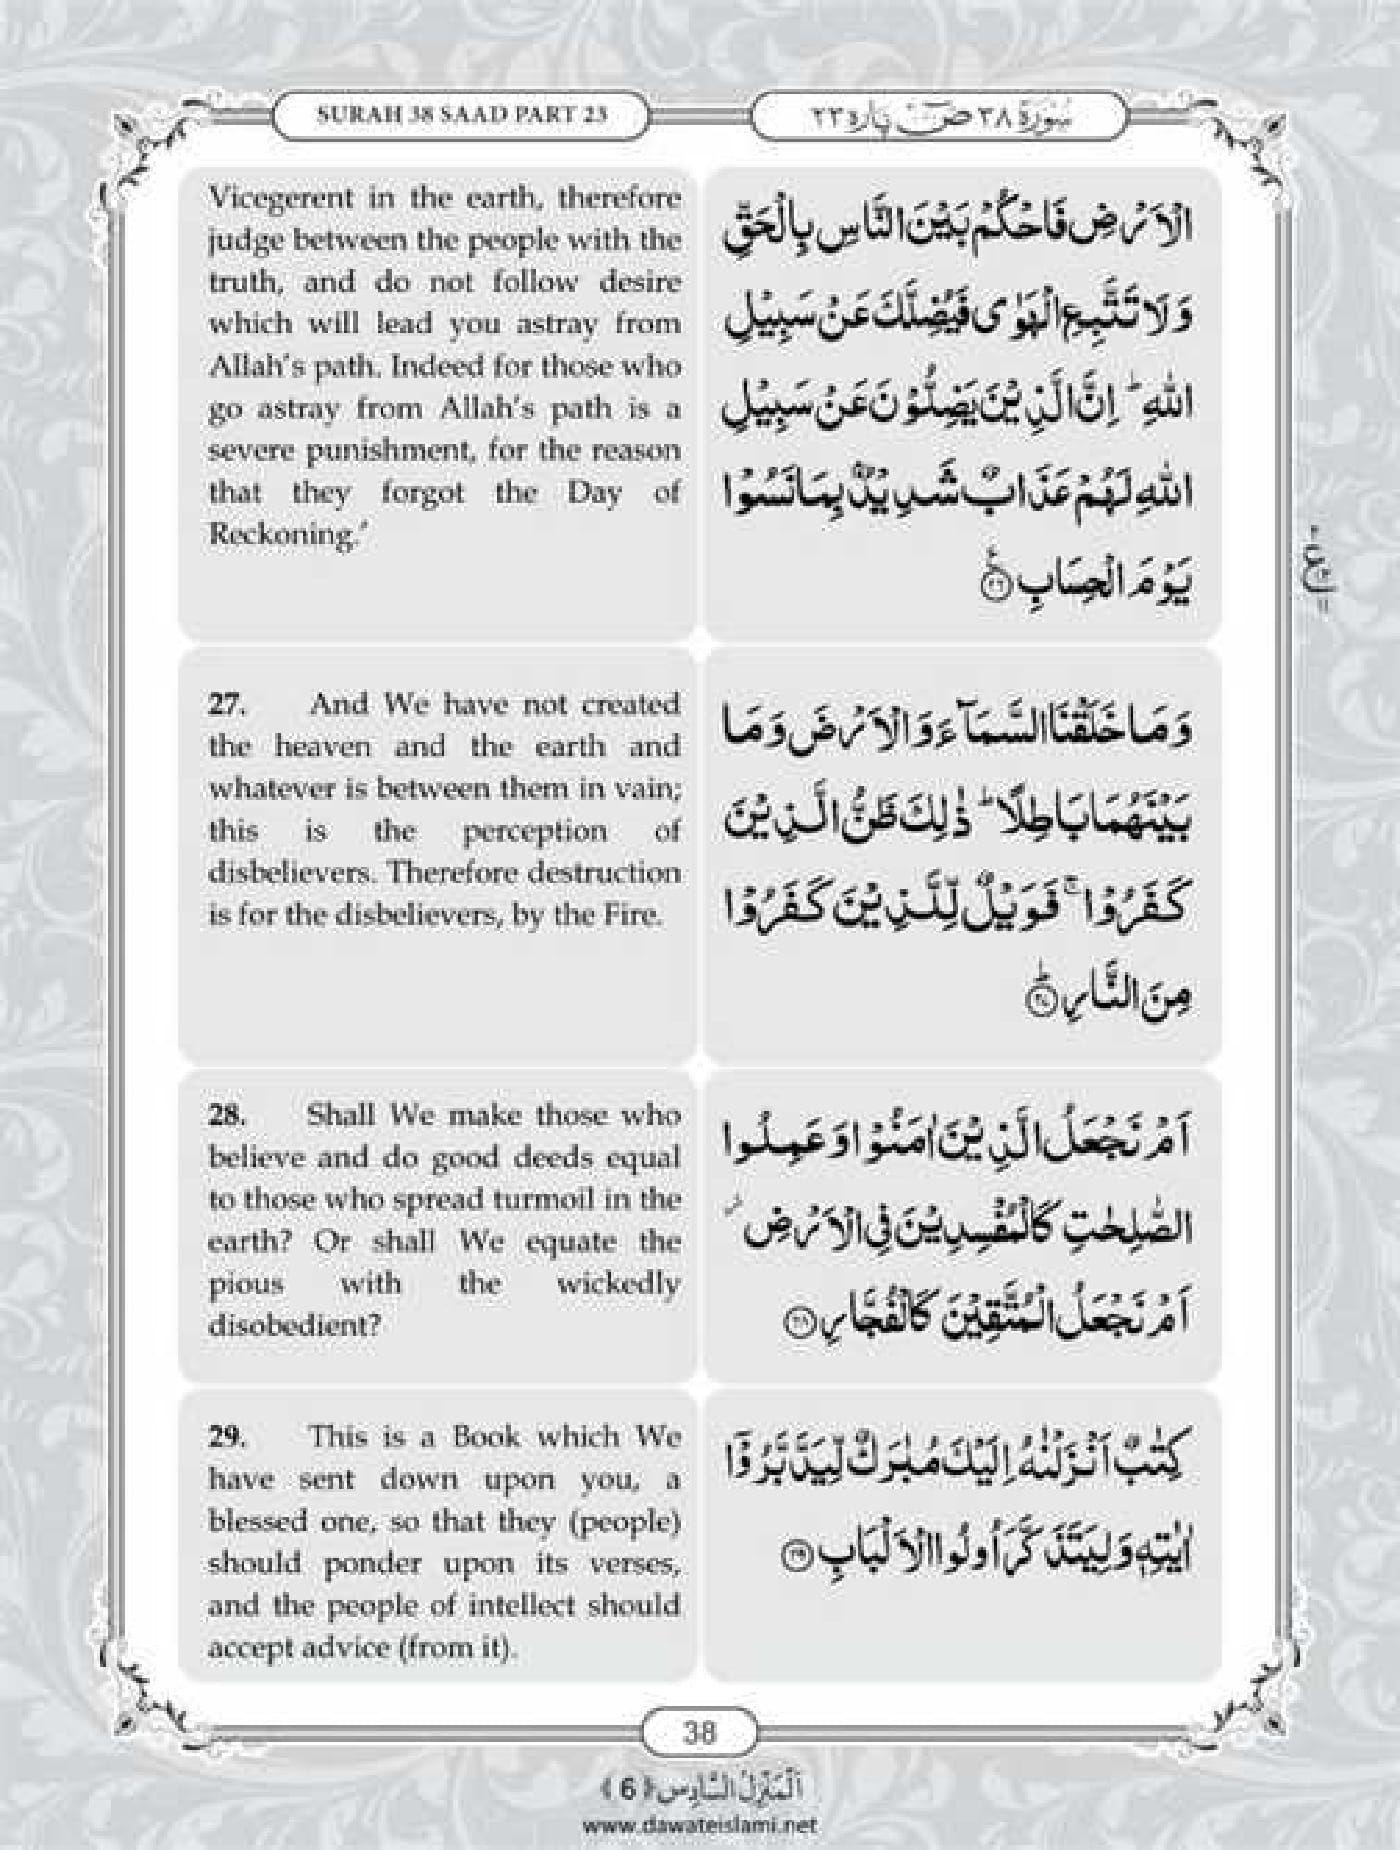 SURAH 38 SAAD PART 23
سُوْرَة ٣٨ صٓ پاره ٢٣
Vicegerent in the earth, therefore
judge between the people with the
truth, and do not follow desire
which will lead you astray from
Allah's path. Indeed for those who
go astray from Allah's path is a
severe punishment, for the reason
that they forgot the Day of
Reckoning.'
الْاَرْضِ فَاحْكُمْ بَيْنَ النَّاسِ بِالْحَقِّ
وَ لَا تَتَّبِعِ الْهَوٰى فَيُضِلَّكَ عَنْ سَبِيْلِ
اللّٰهِ ؕ اِنَّ الَّذِيْنَ يَضِلُّوْنَ عَنْ سَبِيْلِ
اللّٰهِ لَهُمْ عَذَابٌ شَدِيْدٌۢ بِمَا نَسُوْا
يَوْمَ الْحِسَابِ ﴿٢٦﴾
27. And We have not created
the heaven and the earth and
whatever is between them in vain;
this is the perception of
disbelievers. Therefore destruction
is for the disbelievers, by the Fire.
وَ مَا خَلَقْنَا السَّمَآءَ وَ الْاَرْضَ وَ مَا
بَيْنَهُمَا بَاطِلًا ؕ ذٰلِكَ ظَنُّ الَّذِيْنَ
كَفَرُوْا ۚ فَوَيْلٌ لِّلَّذِيْنَ كَفَرُوْا
مِنَ النَّارِ ؕ﴿٢٧﴾
28. Shall We make those who
believe and do good deeds equal
to those who spread turmoil in the
earth? Or shall We equate the
pious with the wickedly
disobedient?
اَمْ نَجْعَلُ الَّذِيْنَ اٰمَنُوْا وَ عَمِلُوا
الصّٰلِحٰتِ كَالْمُفْسِدِيْنَ فِي الْاَرْضِ ۫
اَمْ نَجْعَلُ الْمُتَّقِيْنَ كَالْفُجَّارِ ﴿٢٨﴾
29. This is a Book which We
have sent down upon you, a
blessed one, so that they (people)
should ponder upon its verses,
and the people of intellect should
accept advice (from it).
كِتٰبٌ اَنْزَلْنٰهُ اِلَيْكَ مُبٰرَكٌ لِّيَدَّبَّرُوْۤا
اٰيٰتِهٖ وَ لِيَتَذَكَّرَ اُولُوا الْاَلْبَابِ ﴿٢٩﴾
38
اَلْمَنْزِلُ السَّادِس ﴿6﴾
www.dawateislami.net